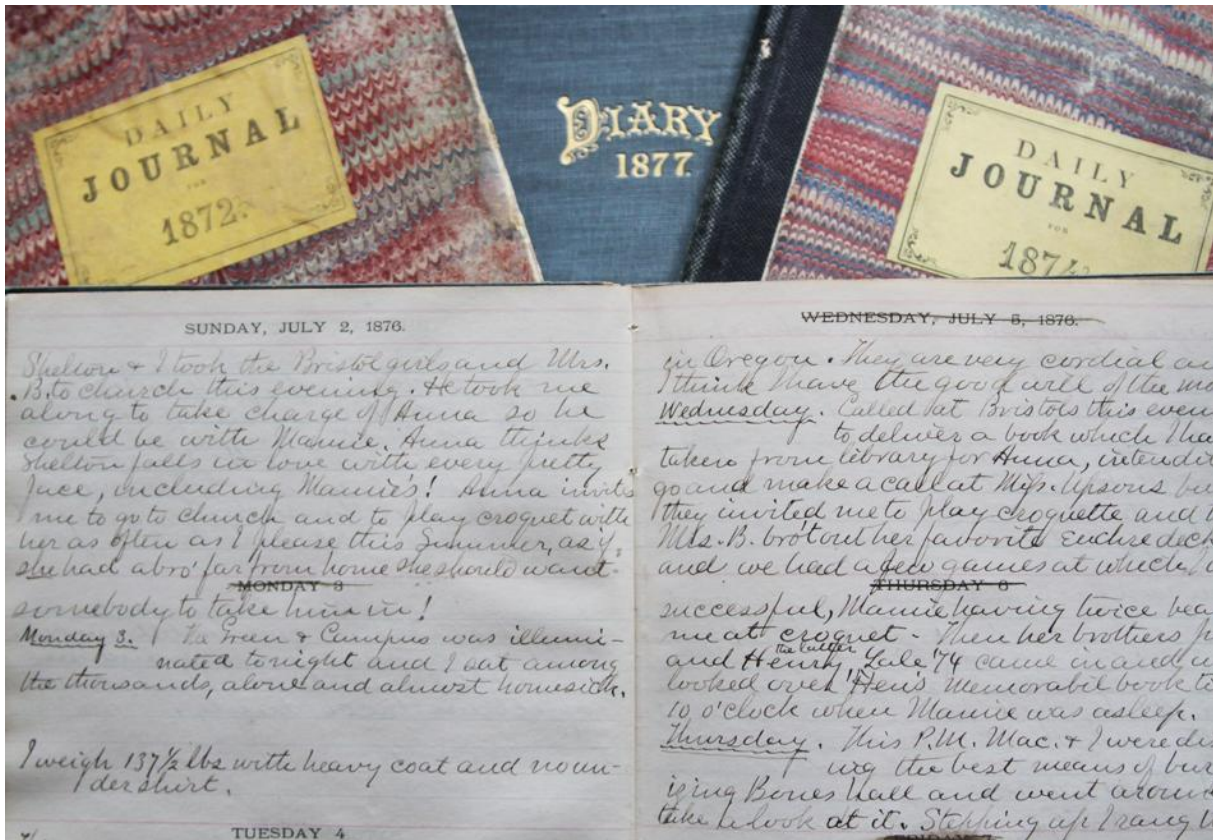 DAILY
JOURNAL
FOR
1872.
DIARY
1877.
DAILY
JOURNAL
FOR
1874.
SUNDAY, JULY 2, 1876.
Shelton & I took the Bristol girls and Mrs.
B. to church this evening. He took me
along to take charge of Anna so he
could be with Mamie. Anna thinks
Shelton falls in love with every pretty
face, including Mamie's! Anna invites
me to go to church and to play croquet with
her as often as I please this Summer, as if
she had a bro' far from home she should want
MONDAY 3
somebody to take him in!
Monday 3. The Green & Campus was illumi-
nated tonight and I sat among
the thousands, alone and almost homesick.
I weigh 137½ lbs with heavy coat and no un-
dershirt.
TUESDAY 4
WEDNESDAY, JULY 5, 1876.
in Oregon. They are very cordial an
I think I have the good will of the
Wednesday. Called at Bristols this even
to deliver a book which I ha
taken from library for Anna, intendi
go and make a call at Miss. Upsons bu
they invited me to play croquette and
Mrs. B. bro't out her favorite Euchre deck
and we had a few games at which
THURSDAY 6
successful, Mamie having twice bea
me at croquet. Then her brothers
and Henry, the latter Yale '74 came in and
looked over Hen's Memorabil book
10 o'clock when Mamie was asleep.
Thursday. This P.M. Mac. & I were dis
ing the best means of bur
izing Bones hall and went aroun
take a look at it. Stepping up I rang